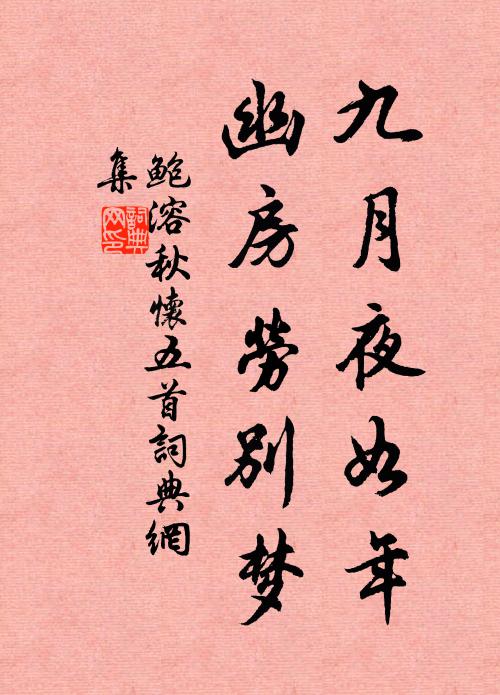 九月夜如年
幽房勞別梦
鲍溶秋懷五首詞典網
集
詞典
网印